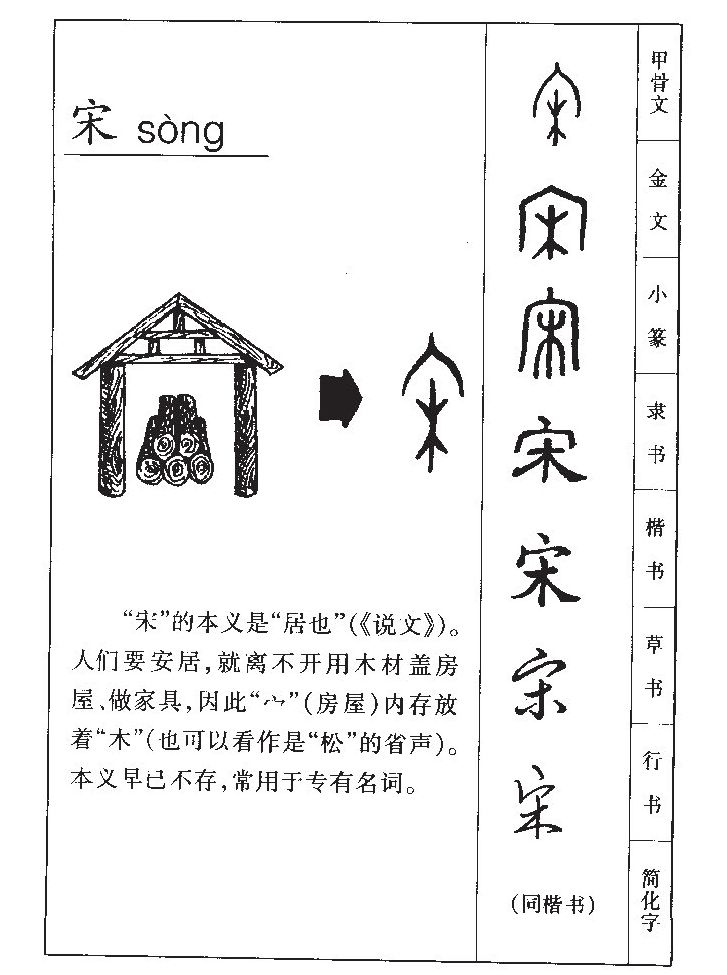 宋 sòng
“宋”的本义是“居也”(《说文》)。
人们要安居,就离不开用木材盖房
屋、做家具,因此“宀”(房屋)内存放
着“木”(也可以看作是“松”的省声)。
本义早已不存,常用于专有名词。
宋
宋
宋
宋
宋
宋
宋
宋
(同楷书)
甲骨文
金文
小篆
隶书
楷书
草书
行书
简化字